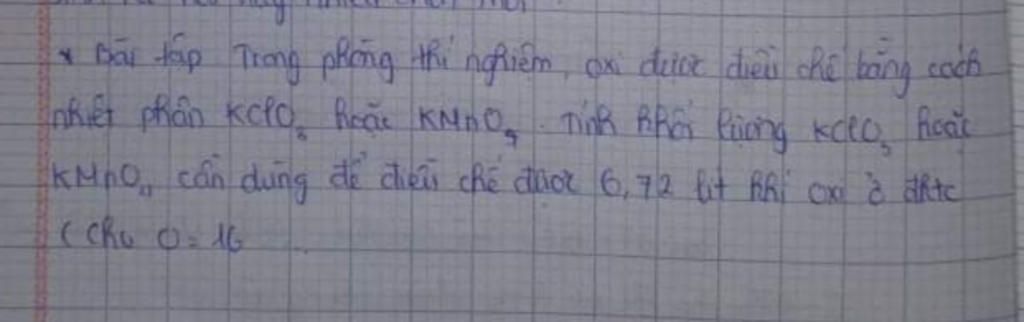 * Bài tập Trong phòng thí nghiệm, oxi được điều chế bằng cách
nhiệt phân KClO₃ hoặc KMnO₄. Tính khối lượng KClO₃ hoặc
KMnO₄ cần dùng để điều chế được 6,72 lít khí oxi ở đktc
(Cho O = 16